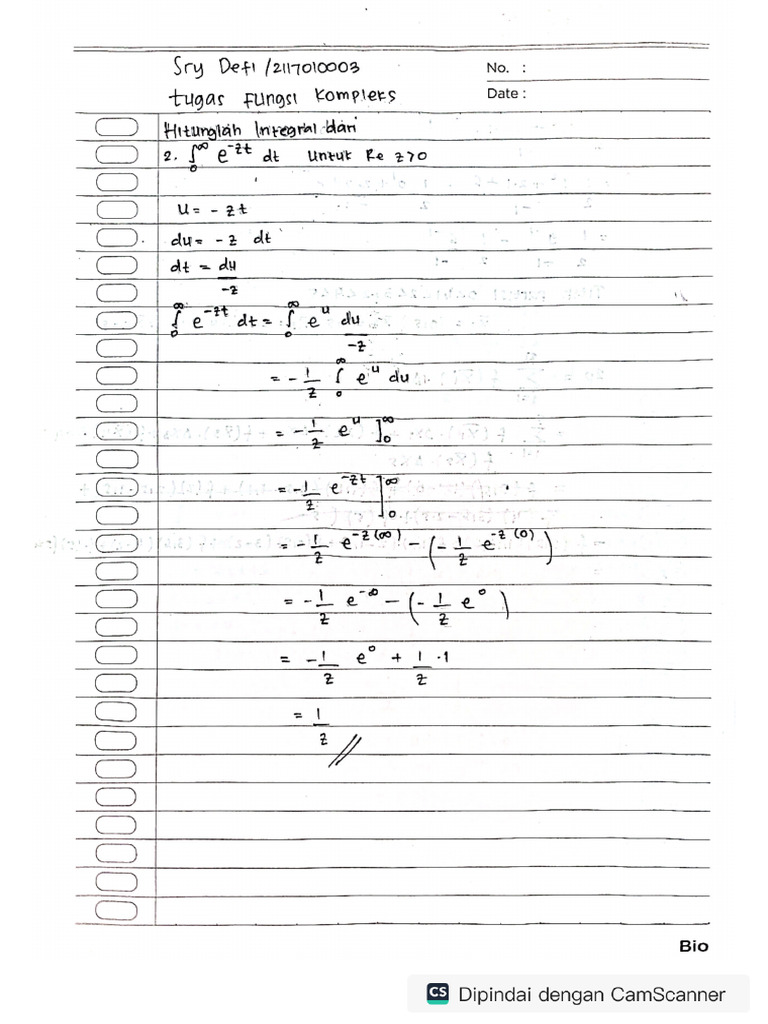 Sry Defi /2117010003
No. :
tugas Fungsi Kompleks
Date :
Hitunglah Integral dari
2. ∫₀^∞ e^(-zt) dt untuk Re z>0
u = - zt
du = - z dt
dt = du/-z
∫₀^∞ e^(-zt) dt = ∫₀^∞ e^u du/-z
= - 1/z ∫₀^∞ e^u du
= - 1/z e^u ]₀^∞
= - 1/z e^(-zt) ]₀^∞
= - 1/z e^(-z(∞)) - (- 1/z e^(-z(0)))
= - 1/z e^(-∞) - (- 1/z e^0)
= - 1/z e^0 + 1/z · 1
= 1/z //
Bio
CS Dipindai dengan CamScanner